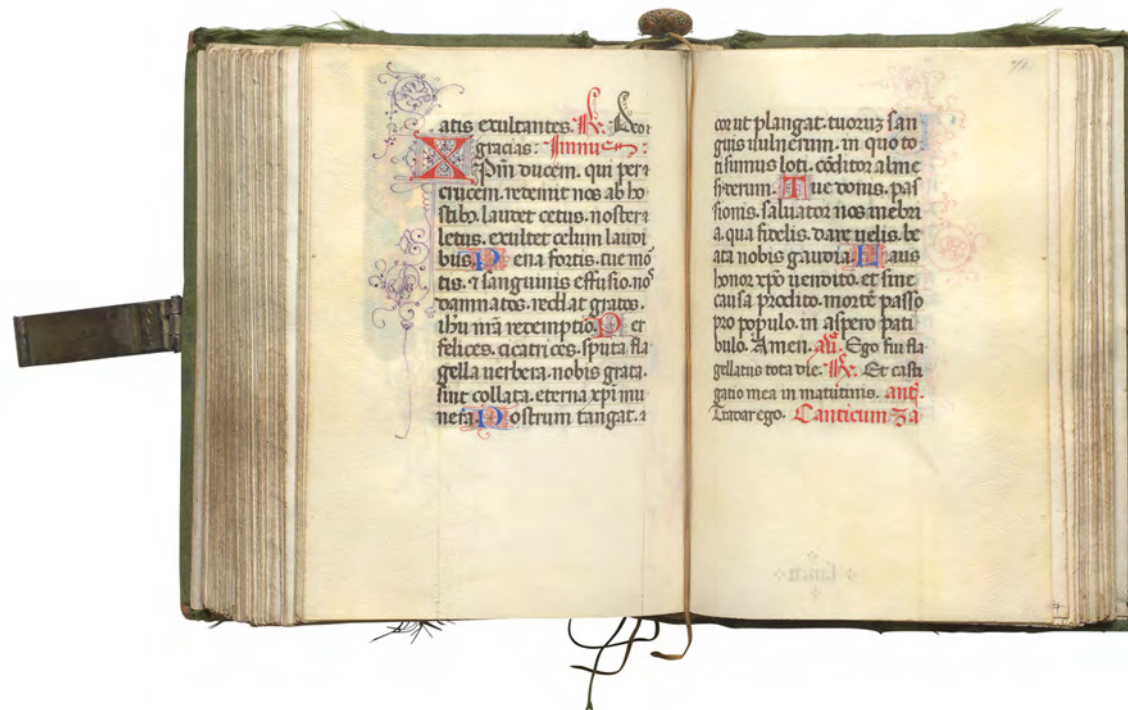 atis exultantes. R. Deo
gracias: Imnus:
Xpm ducem. qui per
crucem. redemit nos ab ho
stib9. laudet cetus. noster
letus. exultet celum laudi
bus. Pena fortis. tue mo
tis. ⁊ sanguinis effusio. nos
damnatos. reddat gratos.
ihu nra redemptio. Per
felices. cicatrices. sputa fla
gella uerbera. nobis grata.
sint collata. eterna xpi mu
nera. Nostrum tangat.
cor ut plangat. tuoruz san
guis uulnerum. in quo to
ti sumus loti. cōditor alme
siderum. Tue donis. pas
sionis. saluator nos inebri
a. qua fidelis. dare uelis. be
ata nobis gaudia. Laus
honor xpo uendito. et sine
causa prodito. mortē passo
pro populo. in aspero pati
bulo. Amen. añ. Ego fui fla
gellatus tota die. R. Et casti
gatio mea in matutinis. ant.
ego. Canticum Za
sancti